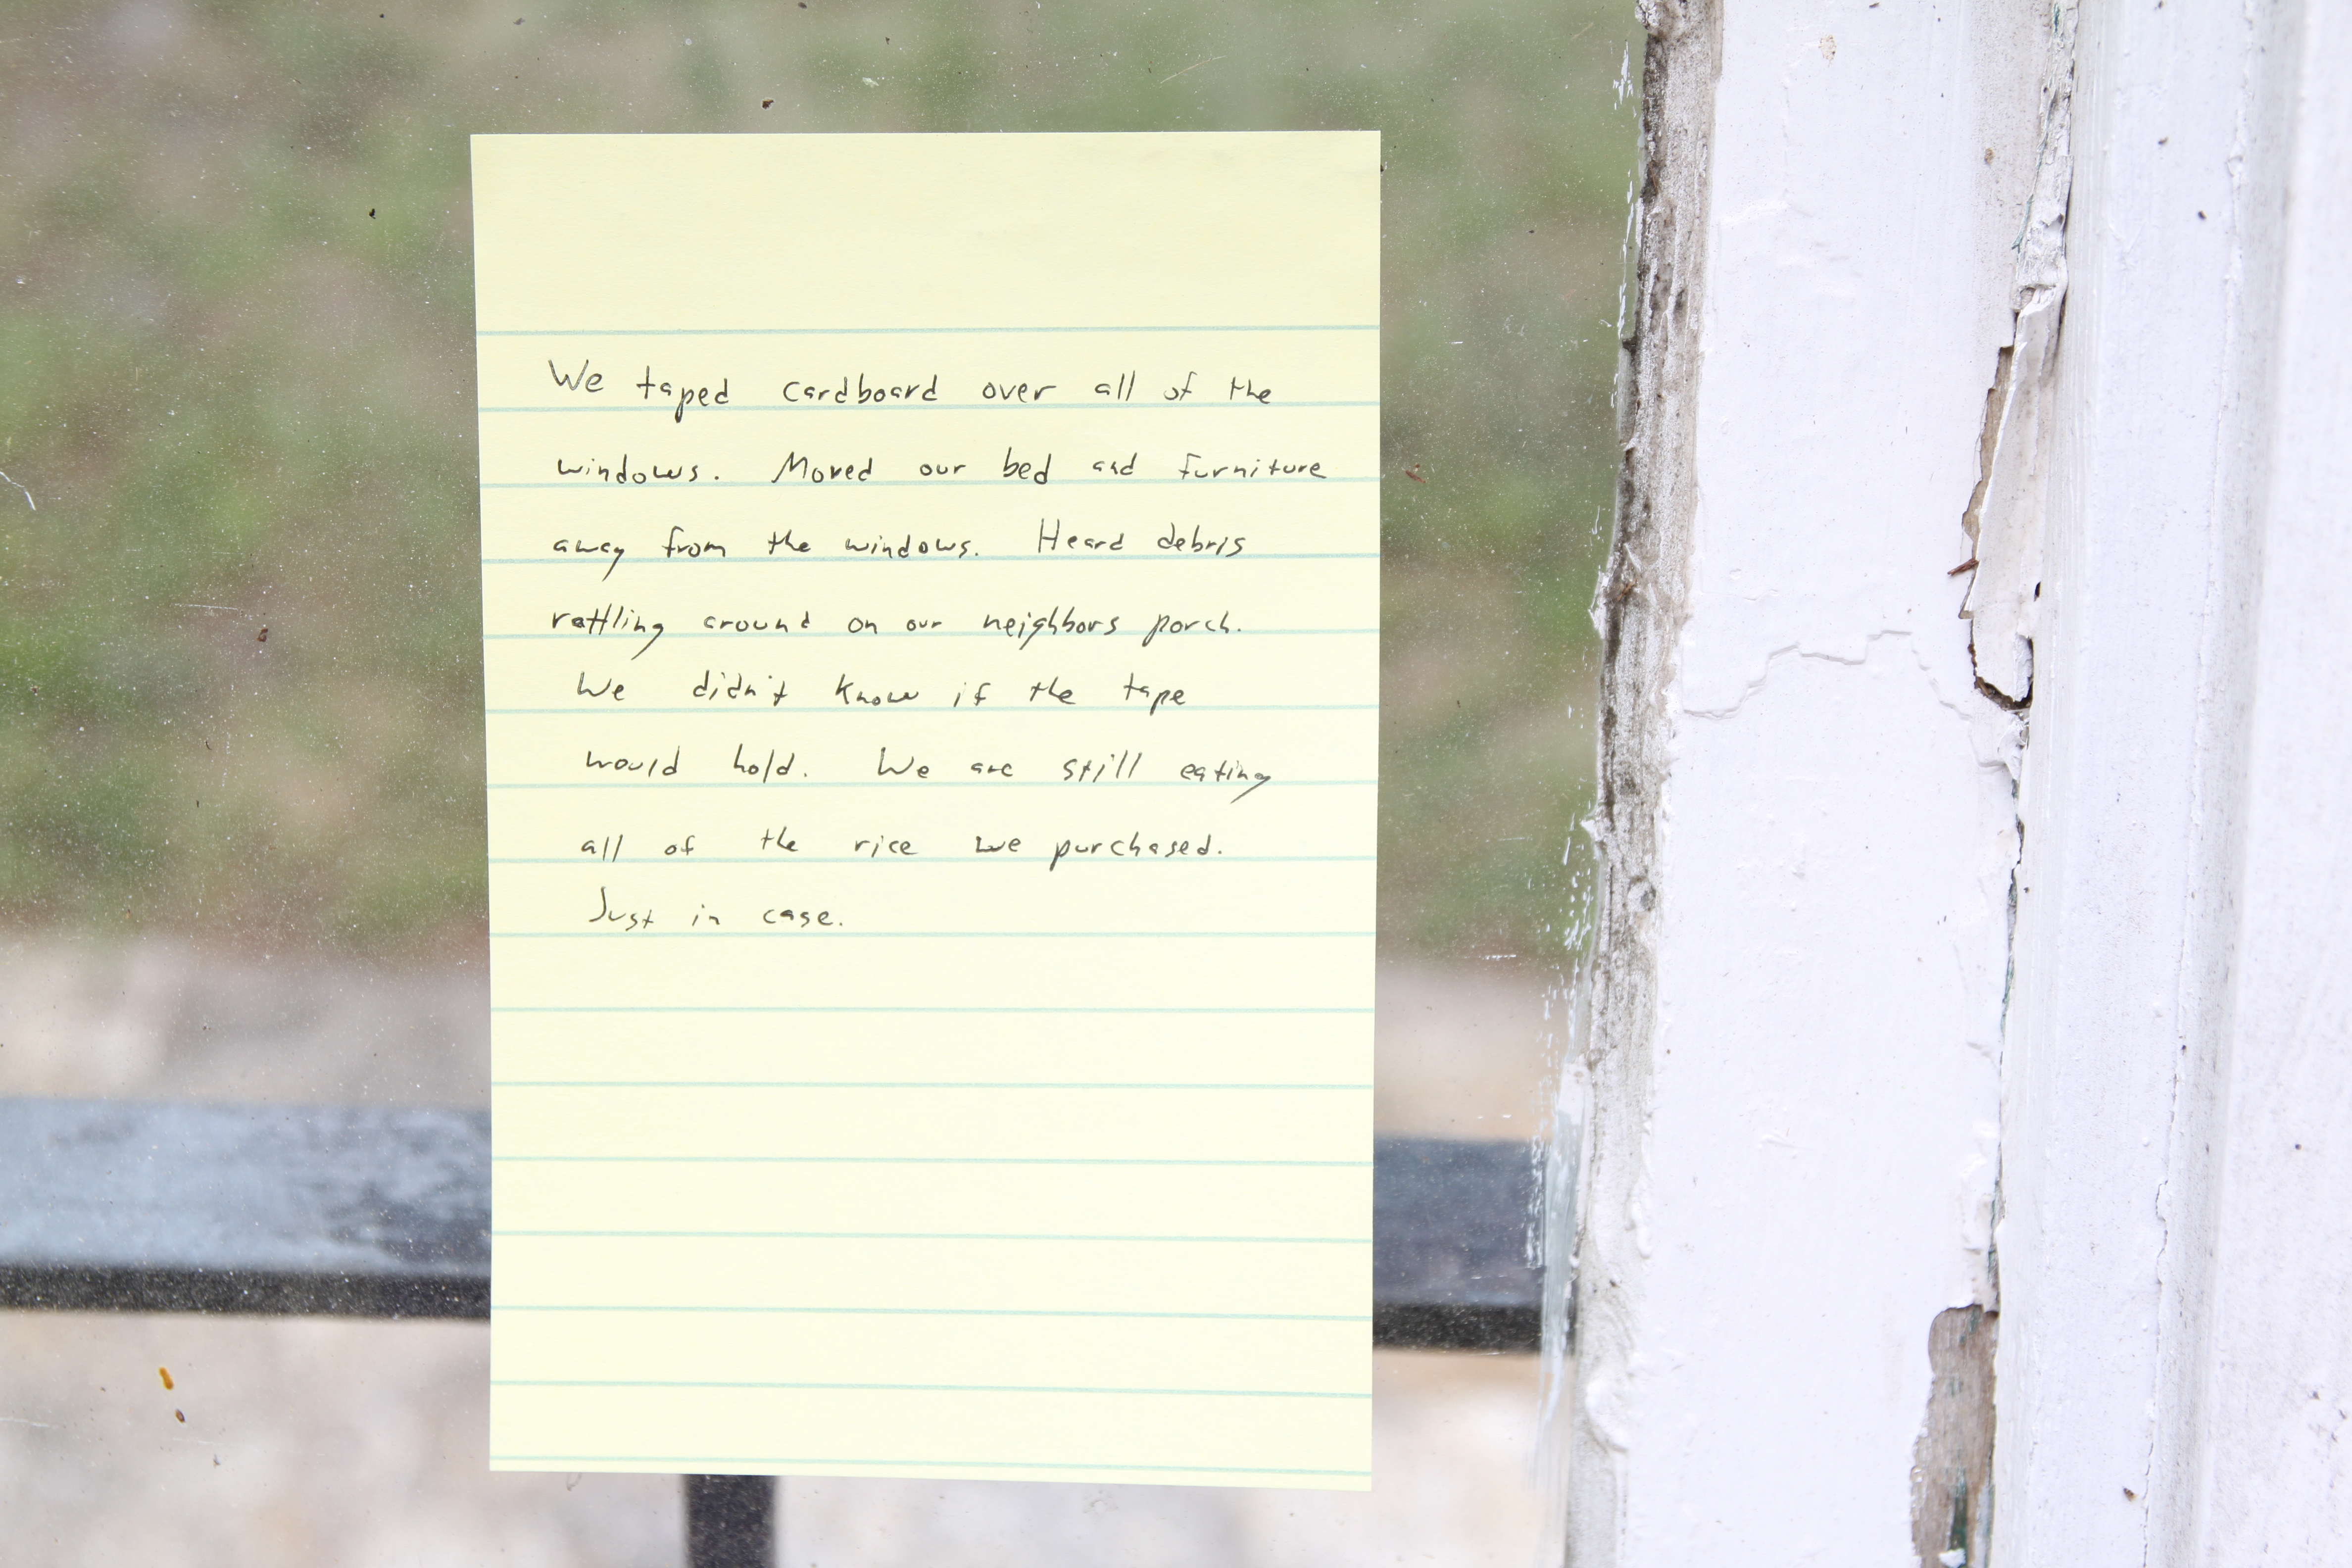 We taped cardboard over all of the
windows. Moved our bed and furniture
away from the windows. Heard debris
rattling around on our neighbors porch.
We didn't know if the tape
would hold. We are still eating
all of the rice we purchased.
Just in case.